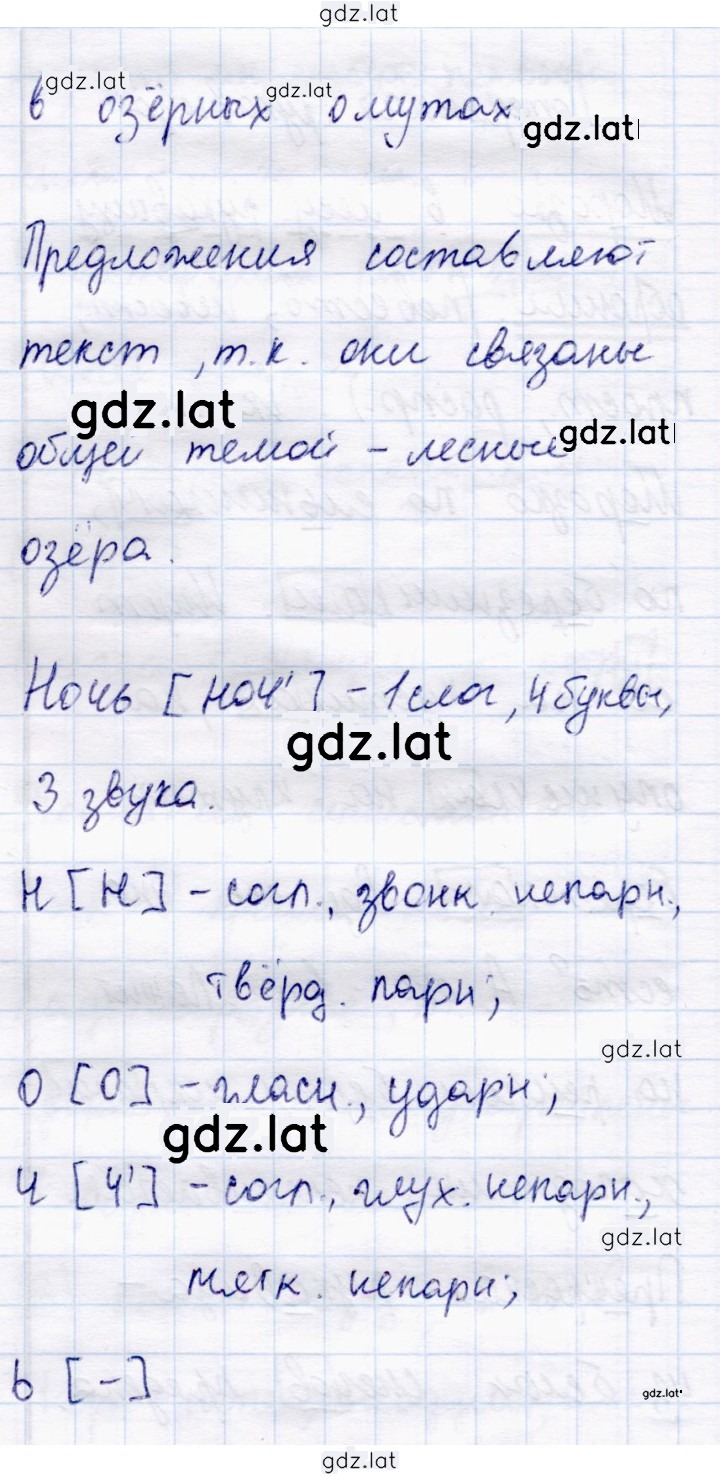 gdz.lat
gdz.lat
gdz.lat
в озёрных омутах
gdz.lat
Предложения составляют
текст, т.к. они связаны
gdz.lat
gdz.lat
общей темой – лесные
озёра.
Ночь [ноч'] – 1 слог, 4 буквы,
gdz.lat
3 звука.
н [н] – согл., звонк. непарн.,
твёрд. парн;
gdz.lat
о [о] – гласн., ударн;
gdz.lat
ч [ч'] – согл., глух. непарн.,
gdz.lat
мягк. непарн;
ь [–]
gdz.lat
gdz.lat